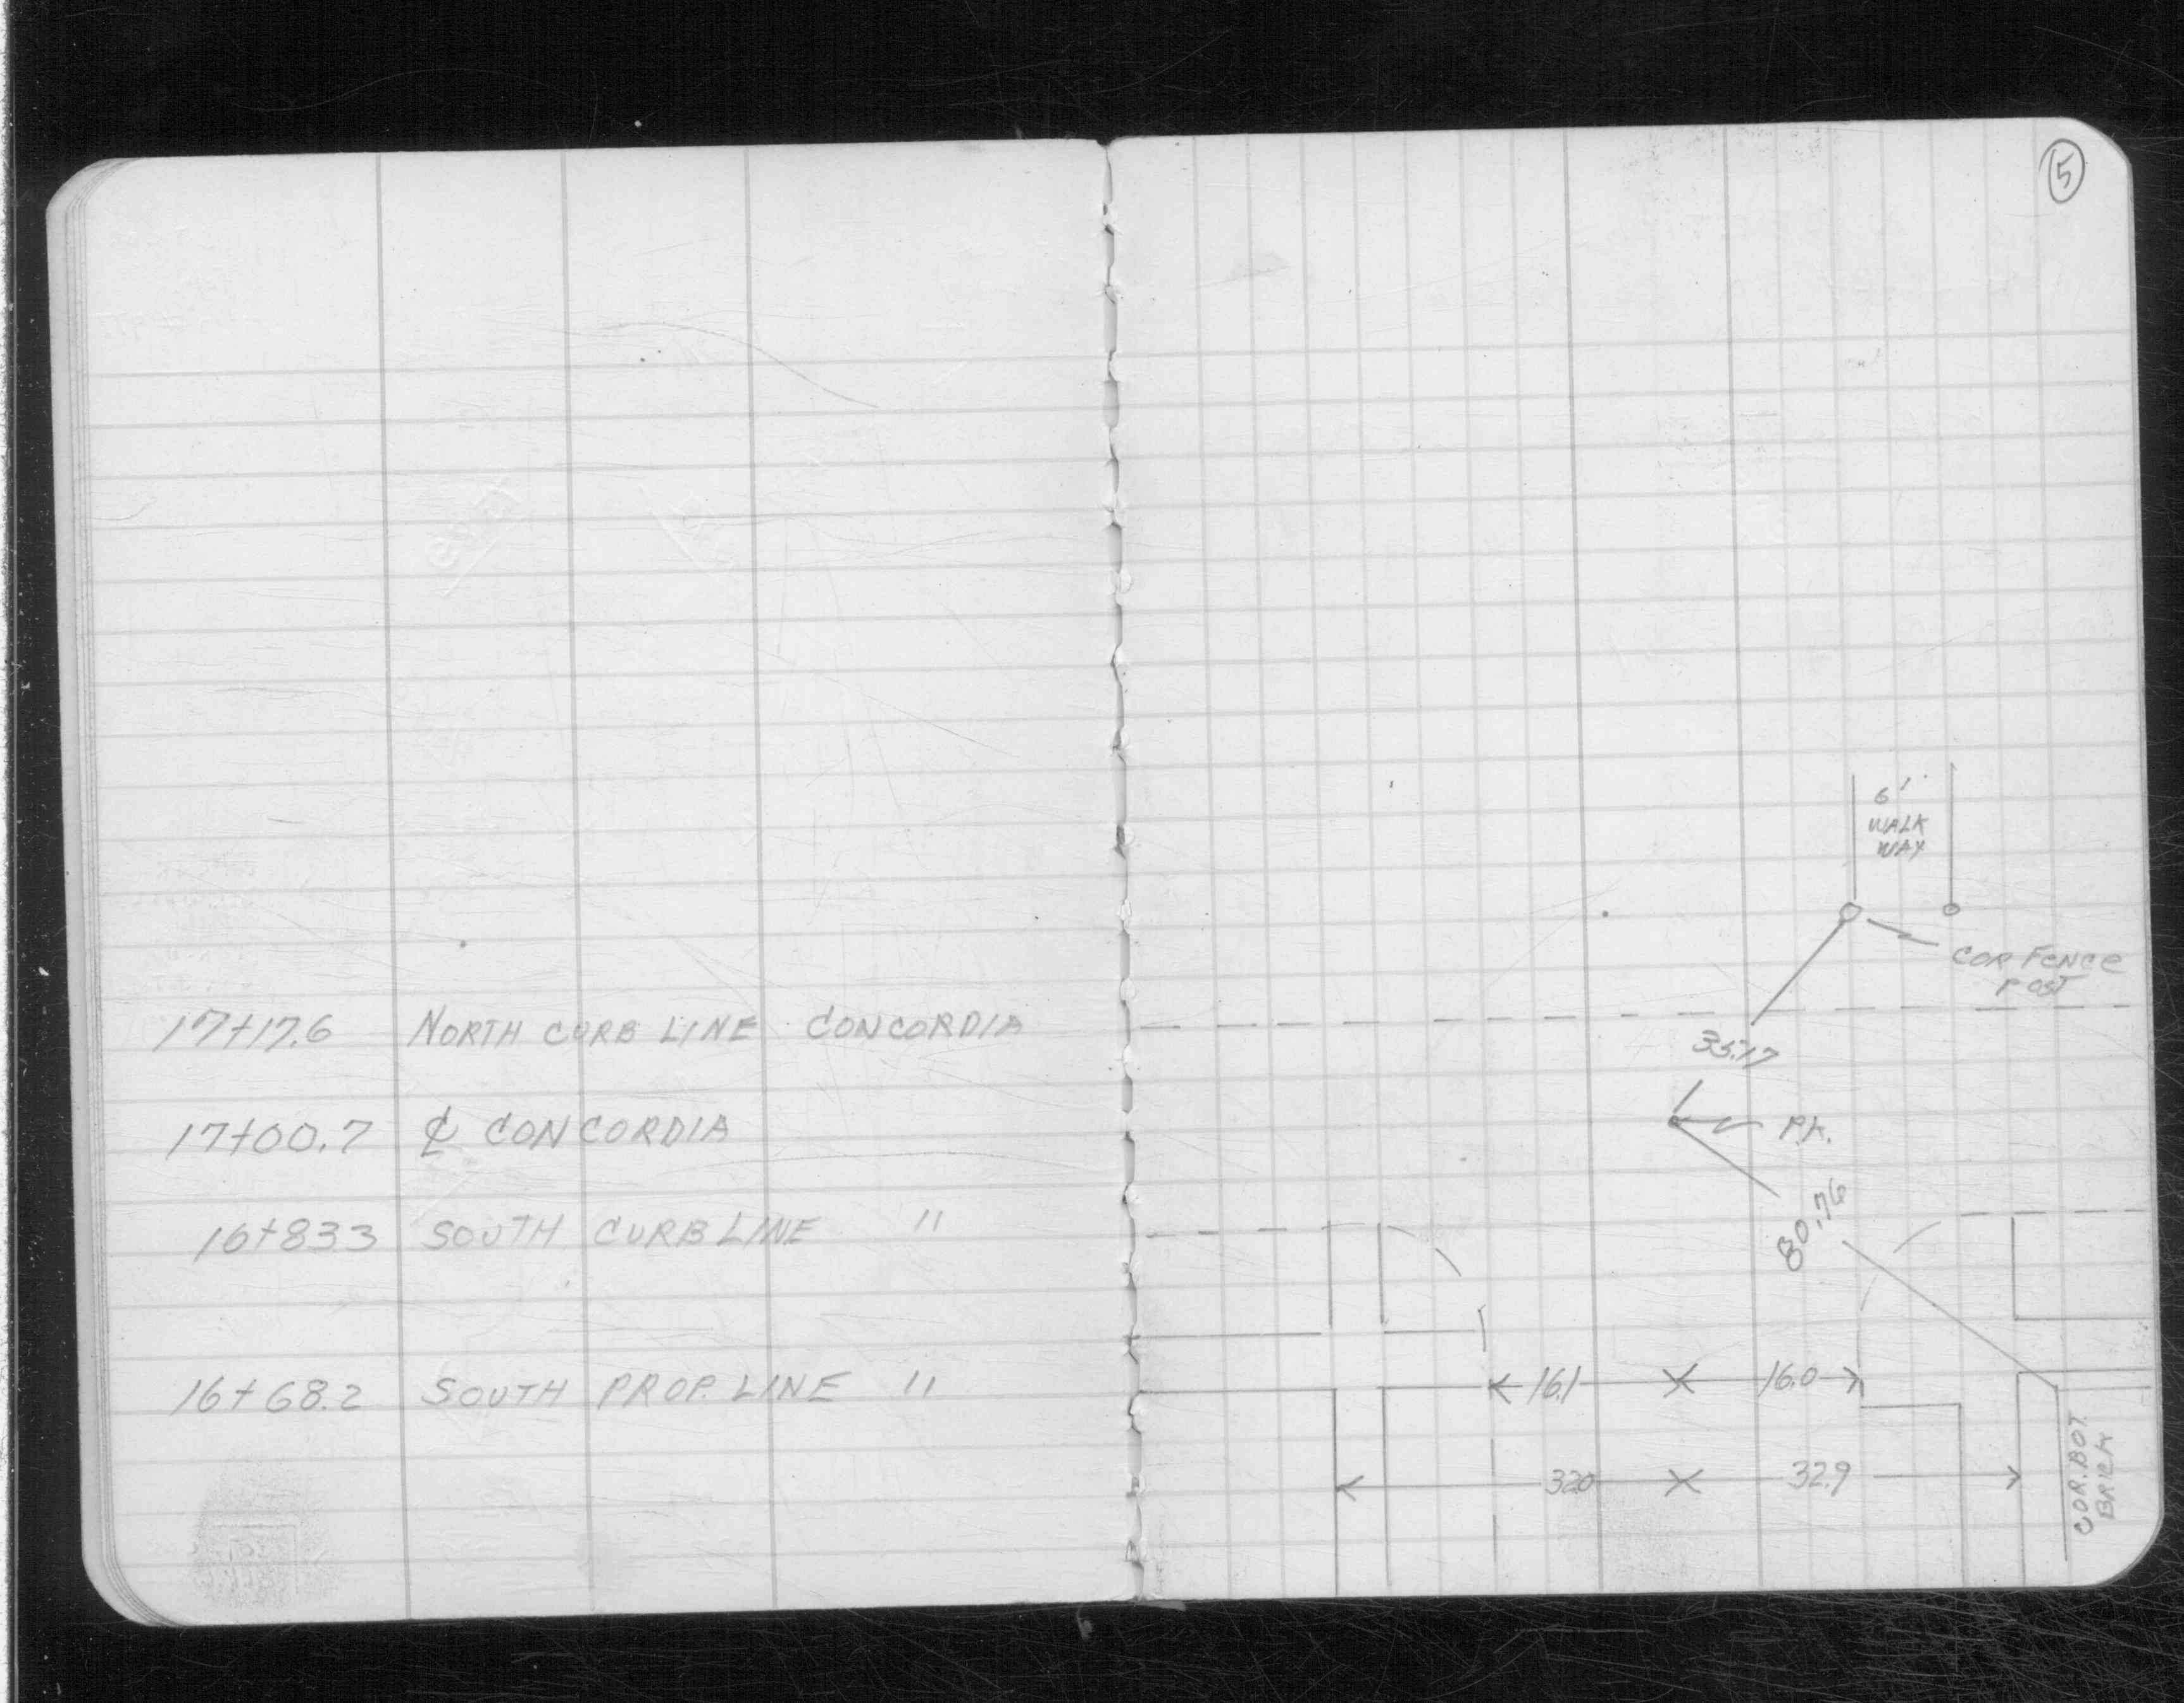 5
17+17.6 NORTH CURB LINE CONCORDIA
17+00.7 ℄ CONCORDIA
16+83.3 SOUTH CURB LINE "
16+68.2 SOUTH PROP. LINE "
6'
WALK
WAY
COR FENCE
POST
35.17
P.K.
80.76
16.1
16.0
32.0
32.9
COR. BOT.
BRICK